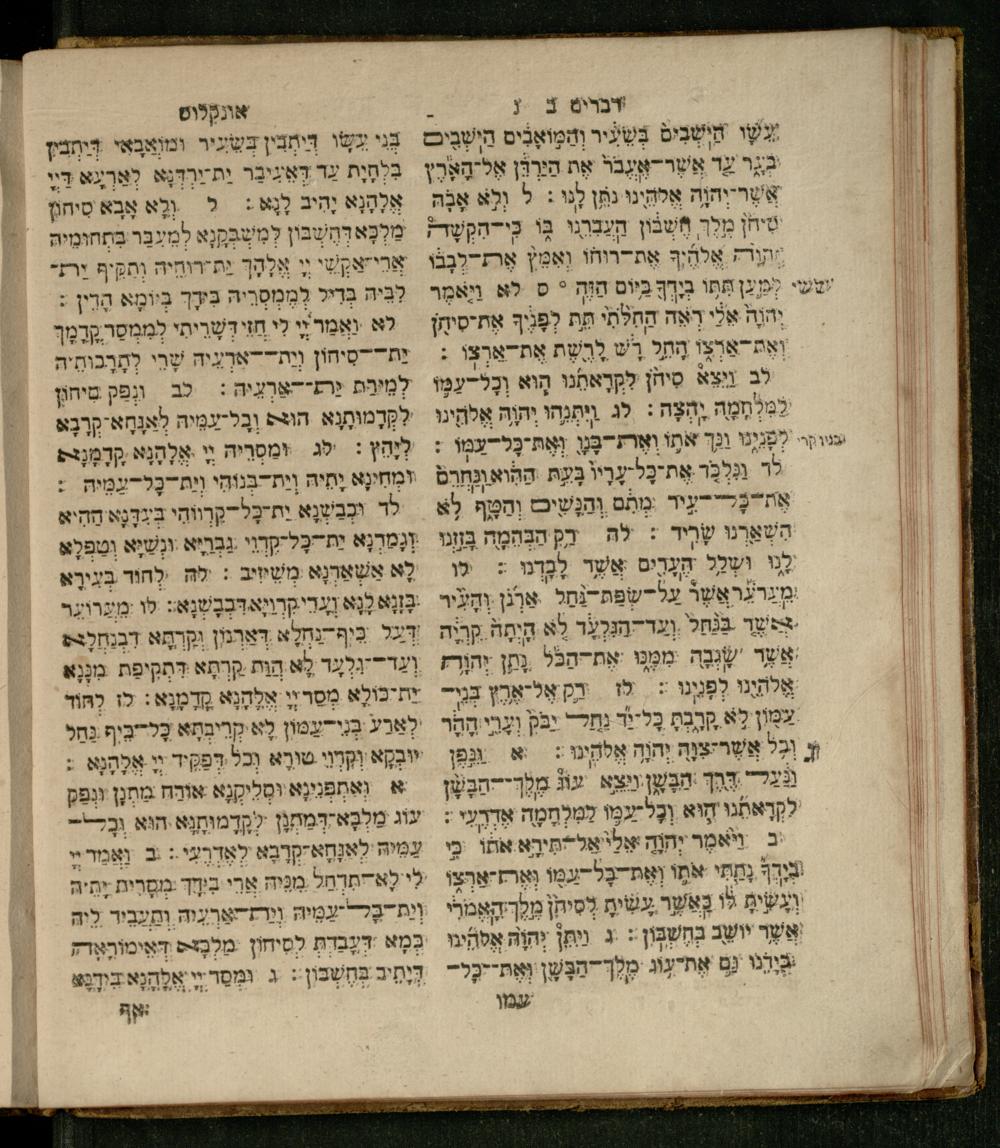 דברים ב ג
עֵשָׂו הַיֹּשְׁבִים בְּשֵׂעִיר וְהַמּוֹאָבִים הַיֹּשְׁבִים
בְּעָר עַד אֲשֶׁר־אֶעֱבֹר אֶת הַיַּרְדֵּן אֶל־הָאָרֶץ
אֲשֶׁר־יְהוָֹה אֱלֹהֵינוּ נֹתֵן לָנוּ : ל וְלֹא אָבָה
סִיחֹן מֶלֶךְ חֶשְׁבּוֹן הַעֲבִרֵנוּ בּוֹ כִּי־הִקְשָׁה
יְהוָֹה אֱלֹהֶיךָ אֶת־רוּחוֹ וְאִמֵּץ אֶת־לְבָבוֹ
ששי לְמַעַן תִּתּוֹ בְיָדְךָ בַּיּוֹם הַזֶּה ° ס לא וַיֹּאמֶר
יְהוָֹה אֵלַי רְאֵה הַחִלֹּתִי תֵּת לְפָנֶיךָ אֶת־סִיחֹן
וְאֶת־אַרְצוֹ הָחֵל רָשׁ לָרֶשֶׁת אֶת־אַרְצוֹ :
לב וַיֵּצֵא סִיחֹן לִקְרָאתֵנוּ הוּא וְכָל־עַמּוֹ
לַמִּלְחָמָה יָהְצָה : לג וַיִּתְּנֵהוּ יְהוָֹה אֱלֹהֵינוּ
בניו קרי לְפָנֵינוּ וַנַּךְ אֹתוֹ וְאֶת־בָּנָו וְאֶת־כָּל־עַמּוֹ :
לד וַנִּלְכֹּד אֶת־כָּל־עָרָיו בָּעֵת הַהִוא וַנַּחֲרֵם
אֶת־כָּל־עִיר מְתִם וְהַנָּשִׁים וְהַטָּף לֹא
הִשְׁאַרְנוּ שָׂרִיד : לה רַק הַבְּהֵמָה בָּזַזְנוּ
לָנוּ וּשְׁלַל הֶעָרִים אֲשֶׁר לָכָדְנוּ : לו
מֵעֲרֹעֵר אֲשֶׁר עַל־שְׂפַת־נַחַל אַרְנֹן וְהָעִיר
אֲשֶׁר בַּנַּחַל וְעַד־הַגִּלְעָד לֹא הָיְתָה קִרְיָה
אֲשֶׁר שָׂגְבָה מִמֶּנּוּ אֶת־הַכֹּל נָתַן יְהוָֹה
אֱלֹהֵינוּ לְפָנֵינוּ : לז רַק אֶל־אֶרֶץ בְּנֵי־
עַמּוֹן לֹא קָרָבְתָּ כָּל־יַד נַחַל יַבֹּק וְעָרֵי הָהָר
וְכֹל אֲשֶׁר־צִוָּה יְהוָֹה אֱלֹהֵינוּ : א וַנֵּפֶן
וַנַּעַל דֶּרֶךְ הַבָּשָׁן וַיֵּצֵא עוֹג מֶלֶךְ־הַבָּשָׁן
לִקְרָאתֵנוּ הוּא וְכָל־עַמּוֹ לַמִּלְחָמָה אֶדְרֶעִי :
ב וַיֹּאמֶר יְהוָֹה אֵלַי אַל־תִּירָא אֹתוֹ כִּי
בְיָדְךָ נָתַתִּי אֹתוֹ וְאֶת־כָּל־עַמּוֹ וְאֶת־אַרְצוֹ
וְעָשִׂיתָ לּוֹ כַּאֲשֶׁר עָשִׂיתָ לְסִיחֹן מֶלֶךְ הָאֱמֹרִי
אֲשֶׁר יוֹשֵׁב בְּחֶשְׁבּוֹן : ג וַיִּתֵּן יְהוָֹה אֱלֹהֵינוּ
בְּיָדֵנוּ גַּם אֶת־עוֹג מֶלֶךְ־הַבָּשָׁן וְאֶת־כָּל־
עמו
אונקלוס
בְּנֵי עֵשָׂו דְּיָתְבִין בְּשֵׂעִיר וּמוֹאֲבָאֵי דְּיָתְבִין
בִּלְחָיַת עַד דְּאֶעִיבַר יַת־יַרְדְּנָא לְאַרְעָא דַּיְיָ
אֱלָהָנָא יָהִיב לָנָא : ל וְלָא אָבָא סִיחוֹן
מַלְכָּא דְּחֶשְׁבּוֹן לְמִשְׁבְּקָנָא לְמֶעְבַּר בִּתְחוּמֵיהּ
אֲרֵי־אַקְשִׁי יְיָ אֱלָהָךְ יַת־רוּחֵיהּ וְתַקִּיף יַת־
לִבֵּיהּ בְּדִיל לְמִמְסְרֵיהּ בִּידָךְ בְּיוֹמָא הָדֵין :
לא וַאֲמַר יְיָ לִי חֲזֵי דְּשָׁרֵיתִי לְמִמְסַר קֳדָמָךְ
יַת־סִיחוֹן וְיַת־אַרְעֵיהּ שָׁרֵי לְתָרָכוּתֵיהּ
לְמֵירַת יַת־אַרְעֵיהּ : לב וּנְפַק סִיחוֹן
לְקַדָּמוּתָנָא הוּא וְכָל־עַמֵּיהּ לְאַגָּחָא־קְרָבָא
לְיָהַץ : לג וּמַסְרֵיהּ יְיָ אֱלָהָנָא קֳדָמָנָא
וּמְחֵינָא יָתֵיהּ וְיַת־בְּנוֹהִי וְיַת־כָּל־עַמֵּיהּ :
לד וּכְבַשְׁנָא יַת־כָּל־קִרְווֹהִי בְּעִידָּנָא הַהִיא
וְגַמַּרְנָא יַת־כָּל־קִרְוֵי גֻּבְרַיָּא וּנְשַׁיָּא וְטַפְלָא
לָא אַשְׁאַרְנָא מְשֵׁיזִיב : לה לְחוֹד בְּעִירָא
בַּזְנָא לָנָא וַעֲדֵי קִרְוַיָּא דִּכְבַשְׁנָא : לו מֵעֲרוֹעֵר
דְּעַל כֵּיף־נַחְלָא דְאַרְנוֹן וְקַרְתָּא דִּבְנַחְלָא
וְעַד־גִּלְעָד לָא הֲוַת קַרְתָּא דִּתְקֵיפַת מִנָּנָא
יַת־כּוֹלָא מְסַר יְיָ אֱלָהָנָא קֳדָמָנָא : לז לְחוֹד
לְאַרַע בְּנֵי־עַמּוֹן לָא קְרֵיבְתָּא כָּל־כֵּיף נַחַל
יוּבְקָא וְקִרְוֵי טוּרָא וְכֹל דְּפַקֵּיד יְיָ אֱלָהָנָא :
א וְאִתְפְּנֵינָא וּסְלֵיקְנָא אוֹרַח מַתְנָן וּנְפַק
עוֹג מַלְכָּא־דְּמַתְנָן לְקַדָּמוּתָנָא הוּא וְכָל־
עַמֵּיהּ לְאַגָּחָא־קְרָבָא לְאֶדְרֶעִי : ב וַאֲמַר יְיָ
לִי לָא־תִדְחַל מִנֵּיהּ אֲרֵי בִידָךְ מְסָרִית יָתֵיהּ
וְיַת־כָּל־עַמֵּיהּ וְיַת־אַרְעֵיהּ וְתַעְבֵּיד לֵיהּ
כְּמָא דַּעֲבַדְתְּ לְסִיחוֹן מַלְכָּא דֶּאֱימוֹרָאָה
דְּיָתִיב בְּחֶשְׁבּוֹן : ג וּמְסַר יְיָ אֱלָהָנָא בִּידָנָא
אף